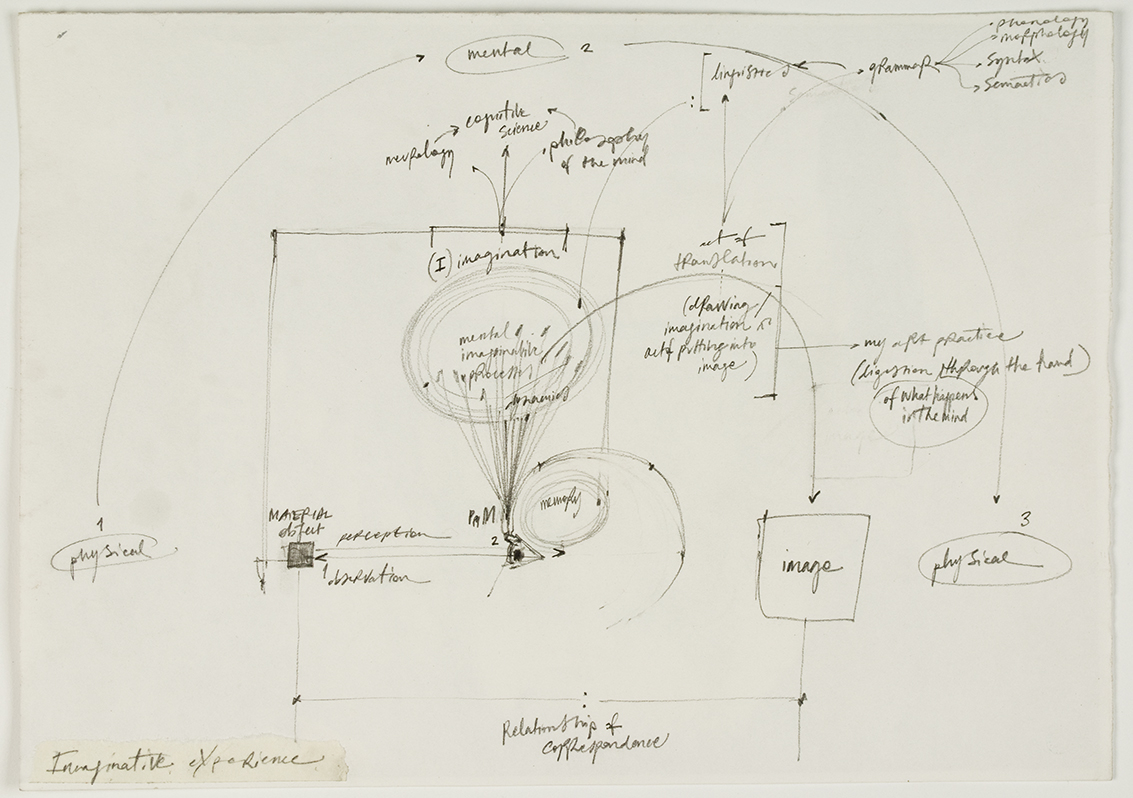 mental 2
linguistics
grammar
phonology
morphology
syntax
semantics
cognitive
science
neurology
philosophy
of the mind
(I) imagination
act of
translation
(drawing/
imagination
act of putting into
image)
my art practice
(digestion through the hand)
of what happens
in the mind
mental
imaginative
process
memory
1
physical
MATERIAL
object
perception
1 observation
2
image
3
physical
Relationship of
correspondence
Imaginative experience